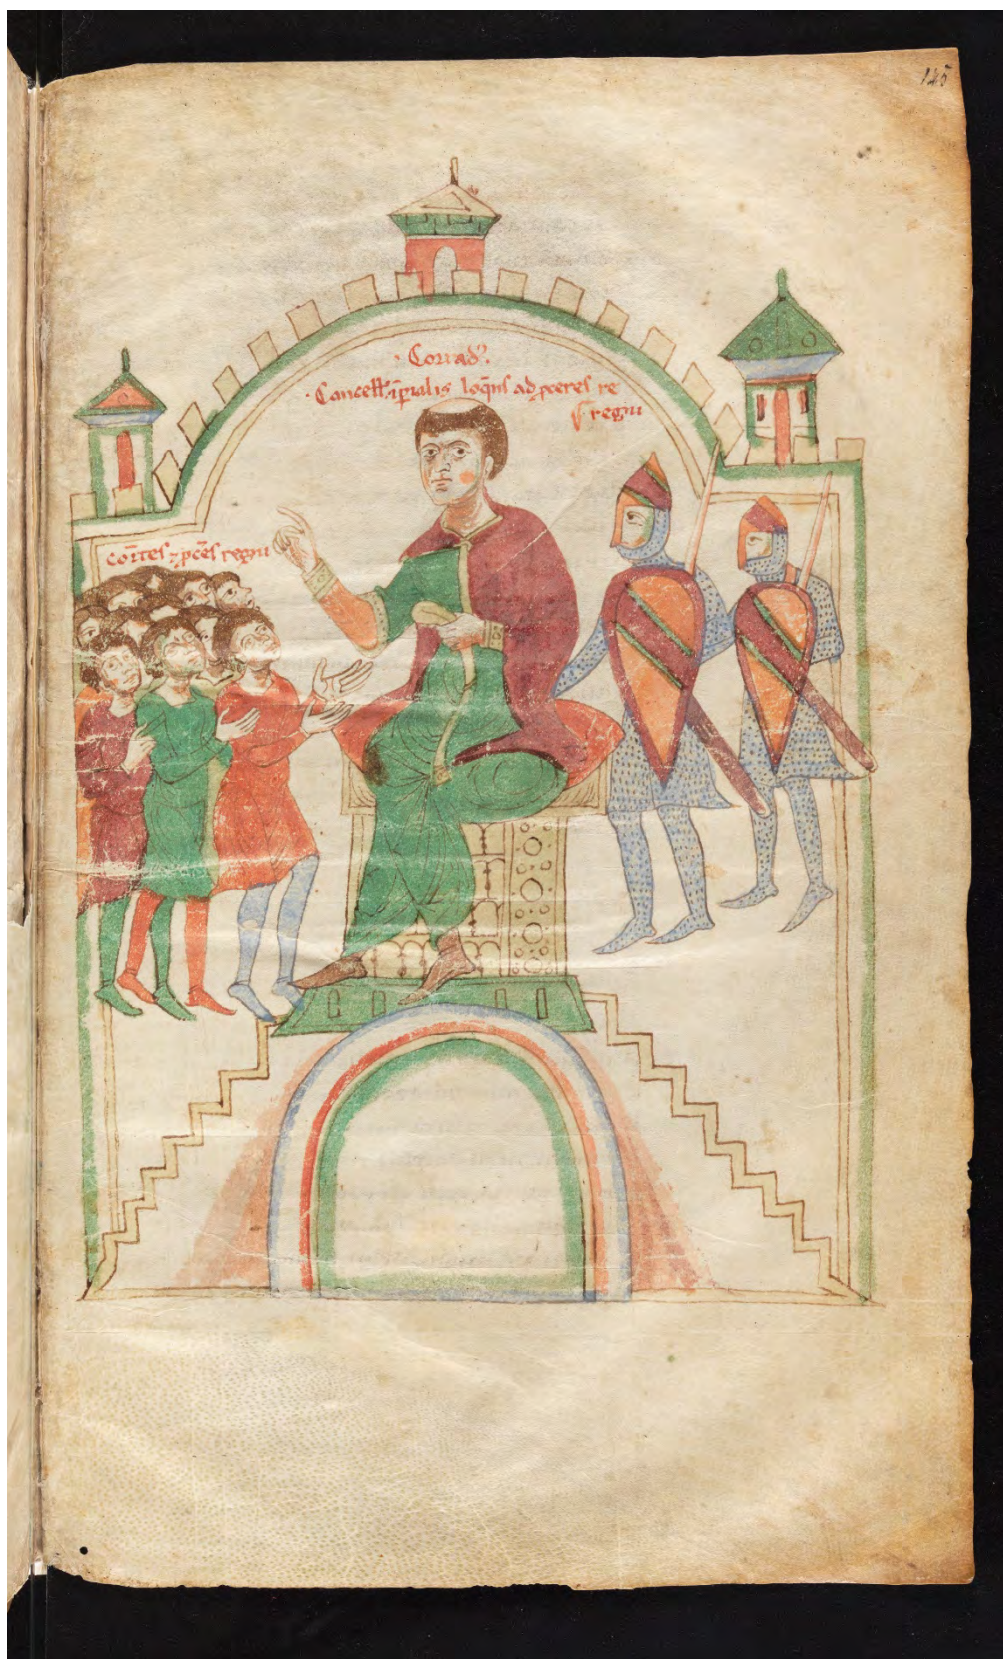 145
· Conrad᷒.
· Cancell̄. īp̄ialis loq̄ns ad p̲ceres re
regni
Cōites ⁊ p̲cēs regni